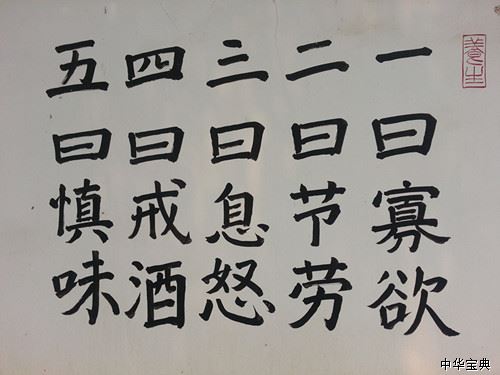 養生
一曰寡欲
二曰节劳
三曰息怒
四曰戒酒
五曰慎味
中华宝典